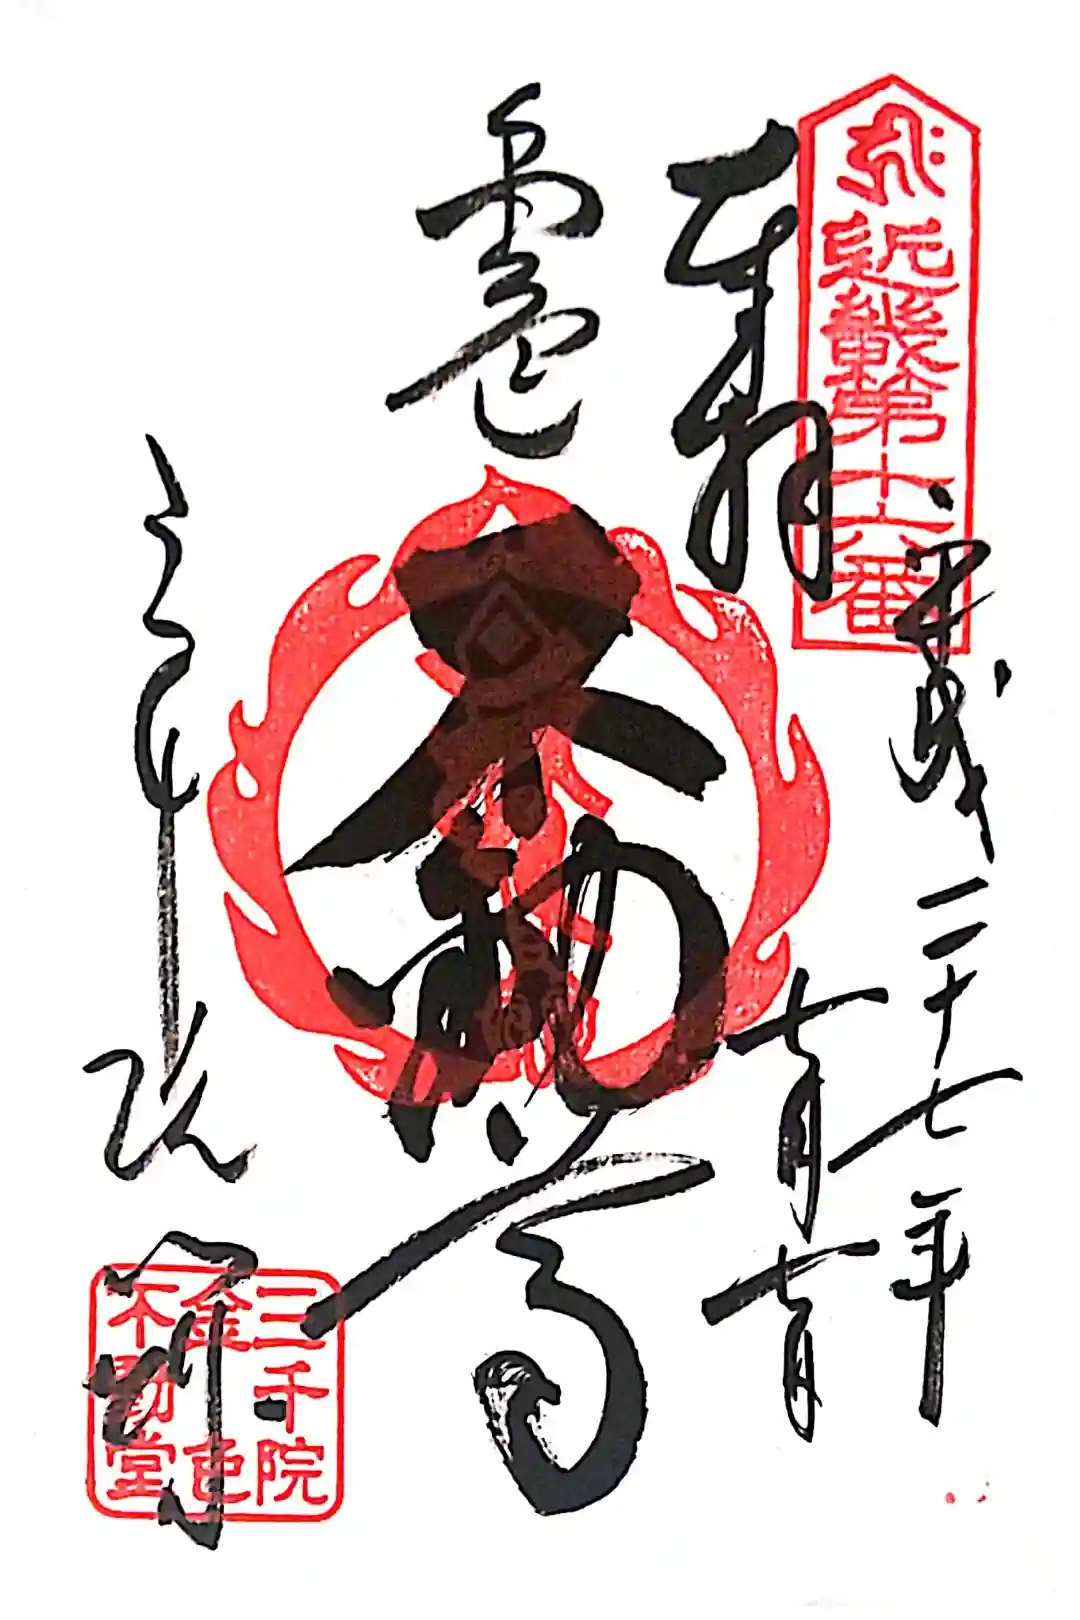 近畿第十六番
奉拝
平成二十七年
七月七日
金色
不動尊
三千院
門跡
三千院
金色
不動堂